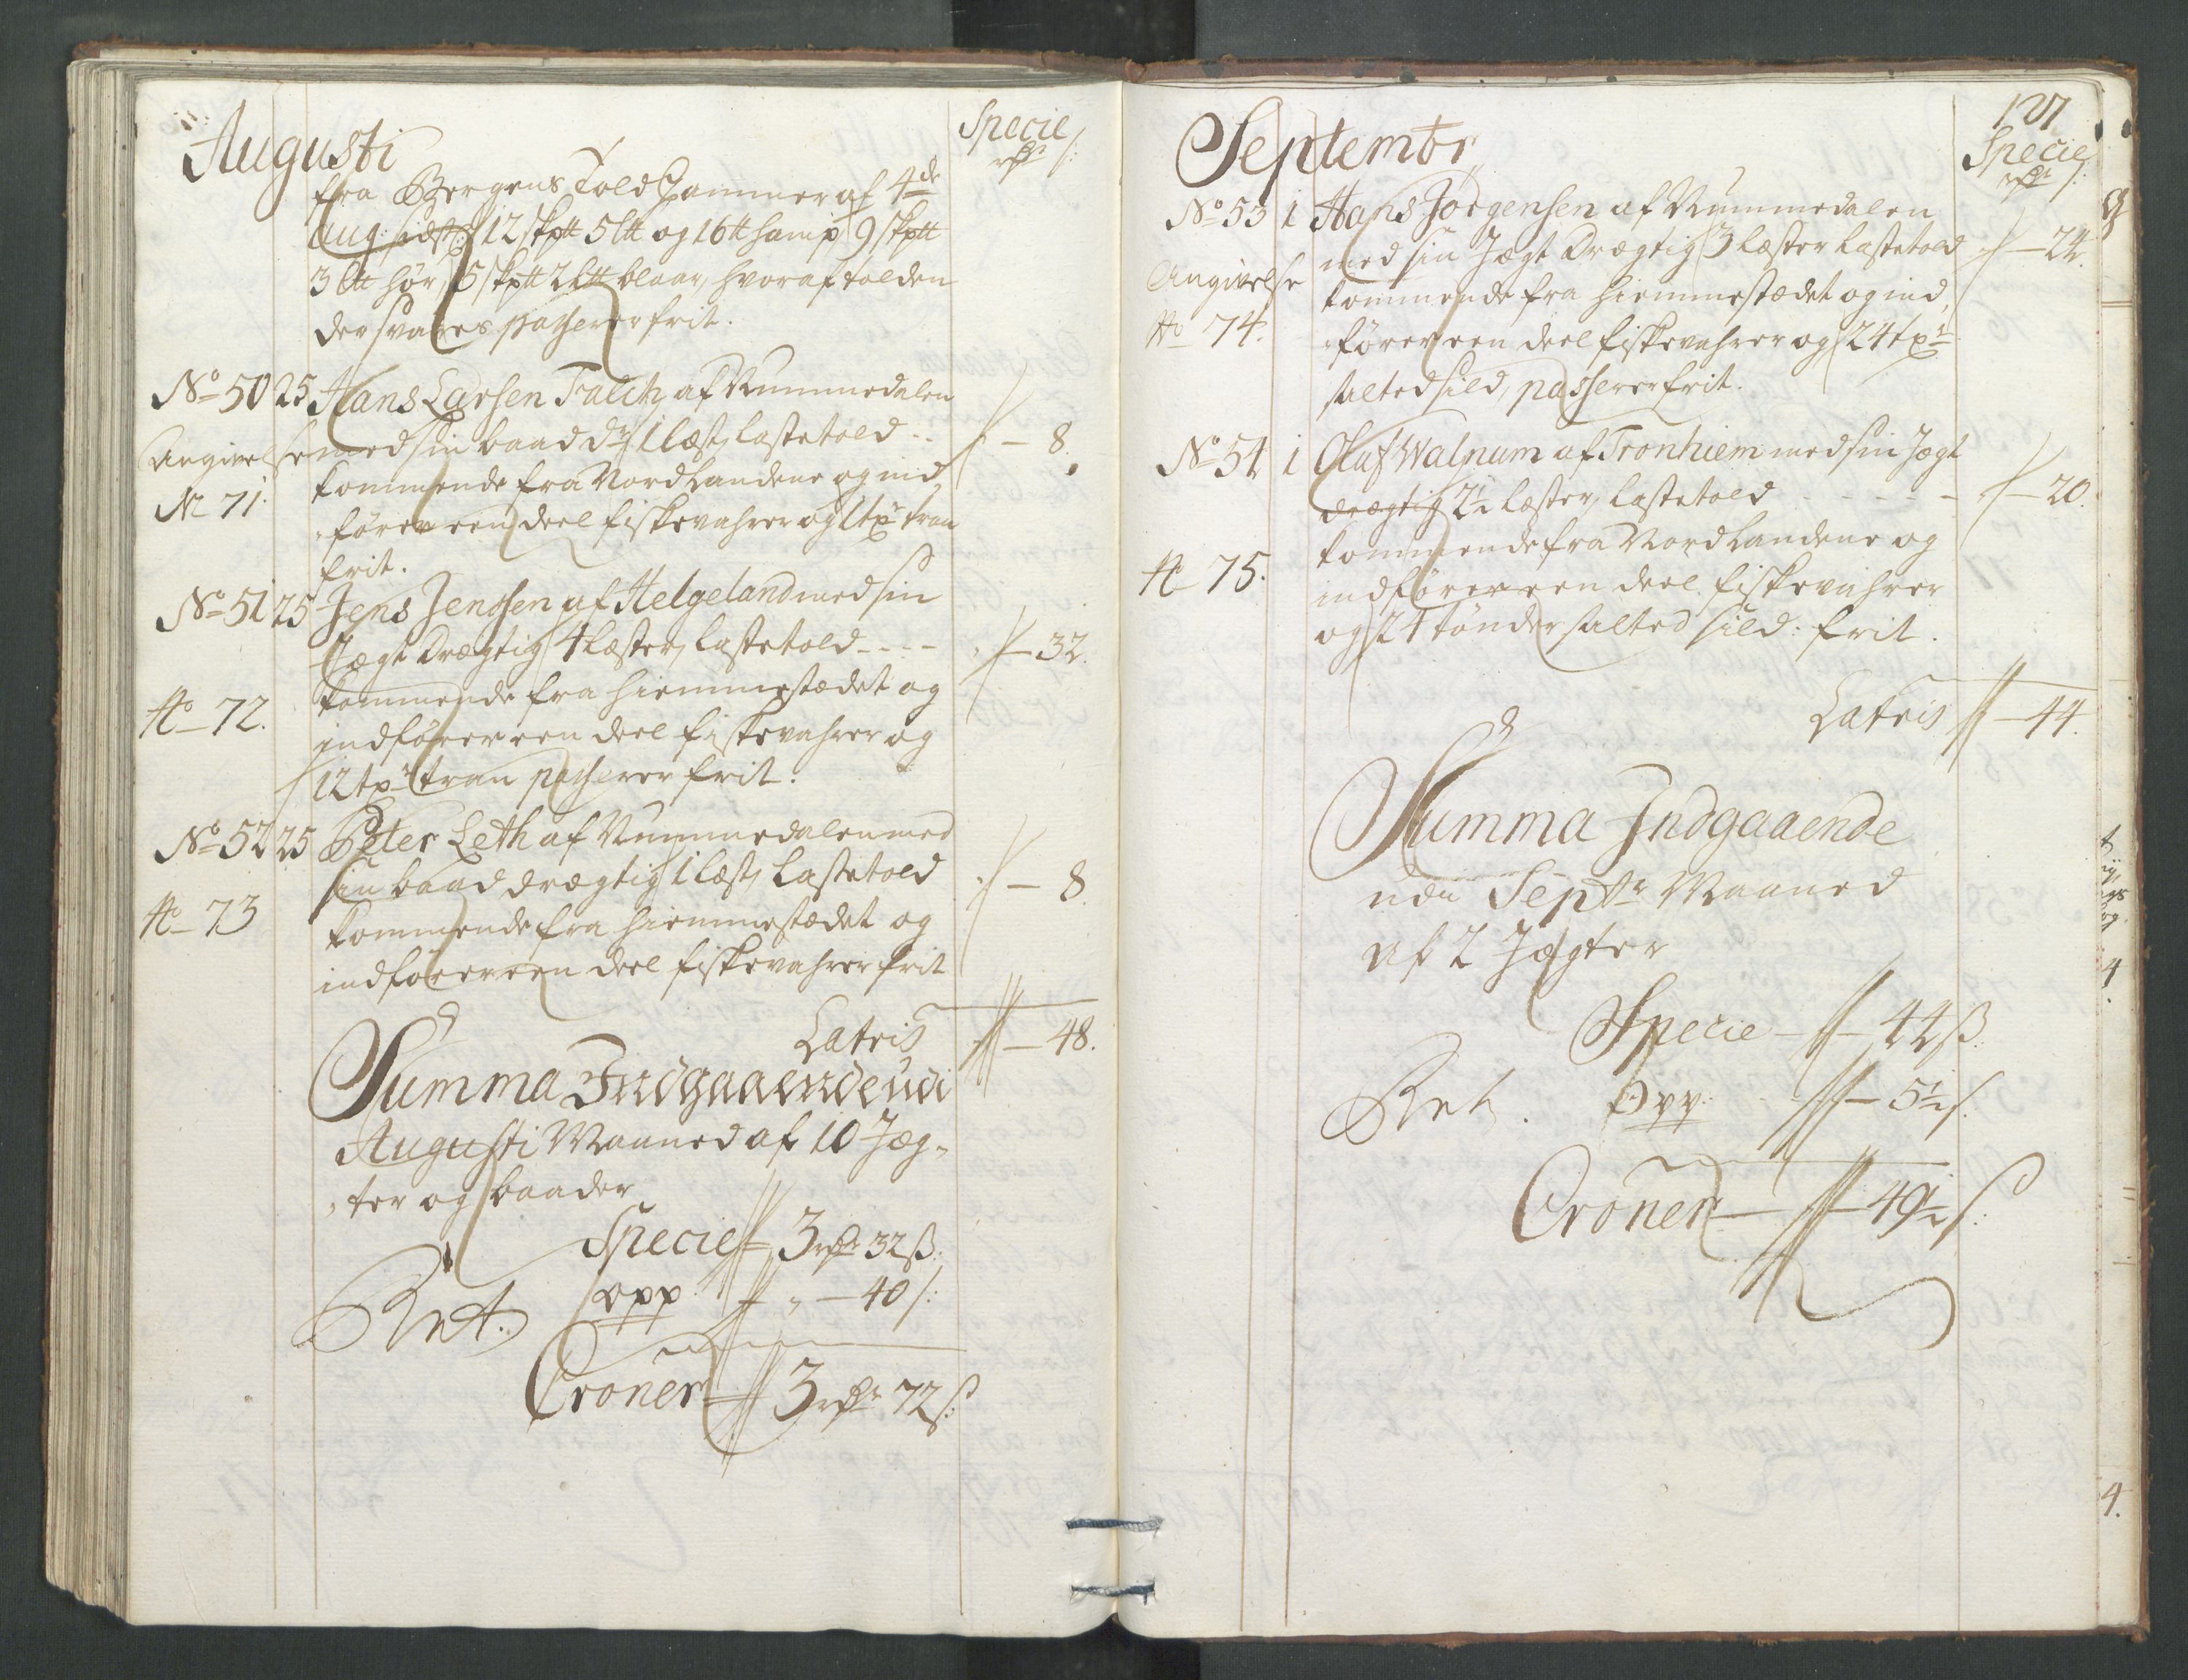 Augusti
Specie
rdr ß:
fra Bergens Told Cammer af 4de
Aug: sidst: 12 skptt 5 ltt og 16 tt hamp 9 skptt
3 ltt hør, 5 skptt 2 ltt blaar, hvoraf tolden
der svares passerer frit.
No 50 25 Hans Larsen Falch af Nummedalen
Angivelse med sin baad dr: 1 læst, lastetold - 8.
No 71. kommende fra Nordlandene og ind
fører een deel fiskevahrer og 1 tr tran
frit.
No 51 25 Jens Jenssen af Helgeland med sin
Jægt drægtig 4 læster, lastetold - - - - 32.
No 72. kommende fra hiemmestædet og
indfører een deel fiskevahrer og
12 tr tran passerer frit.
No 52 25 Peter Leth af Nummedalen med
sin baad drægtig 1 læst, lastetold - 8.
No 73 kommende fra hiemmestædet og
indfører een deel fiskevahrer frit
Latris - 48.
Summa Indgaaende udi
Augusti Maaned af 10 Jæg-
ter og baader
Specie 3 rdr 32 ß:
opp „ - 40 ß:
Croner 3 rdr 72 ß:
127
Septembr
Specie
rdr ß:
No 53 1 Hans Jörgensen af Nummedalen
med sin Jægt drægtig 3 læster lastetold - 24.
Angivelse kommende fra hiemmestædet og ind
No 74. fører een deel fiskevahrer og 24 tr
salted sild, passerer frit.
No 54 1 Oluf Walnum af Tronhiem med sin Jægt
drægtig 2 1/2 læster, lastetold - - - - - 20.
kommende fra Nordlandene og
No 75. indfører een deel fiskevahrer
og 24 tönder salted sild: frit.
Latris - 44.
Summa Indgaaende
udi Septr Maaned
af 2 Jægter
Specie - 44 ß:
opp: - 5 1/2 ß.
Croner - 49 1/2 ß: